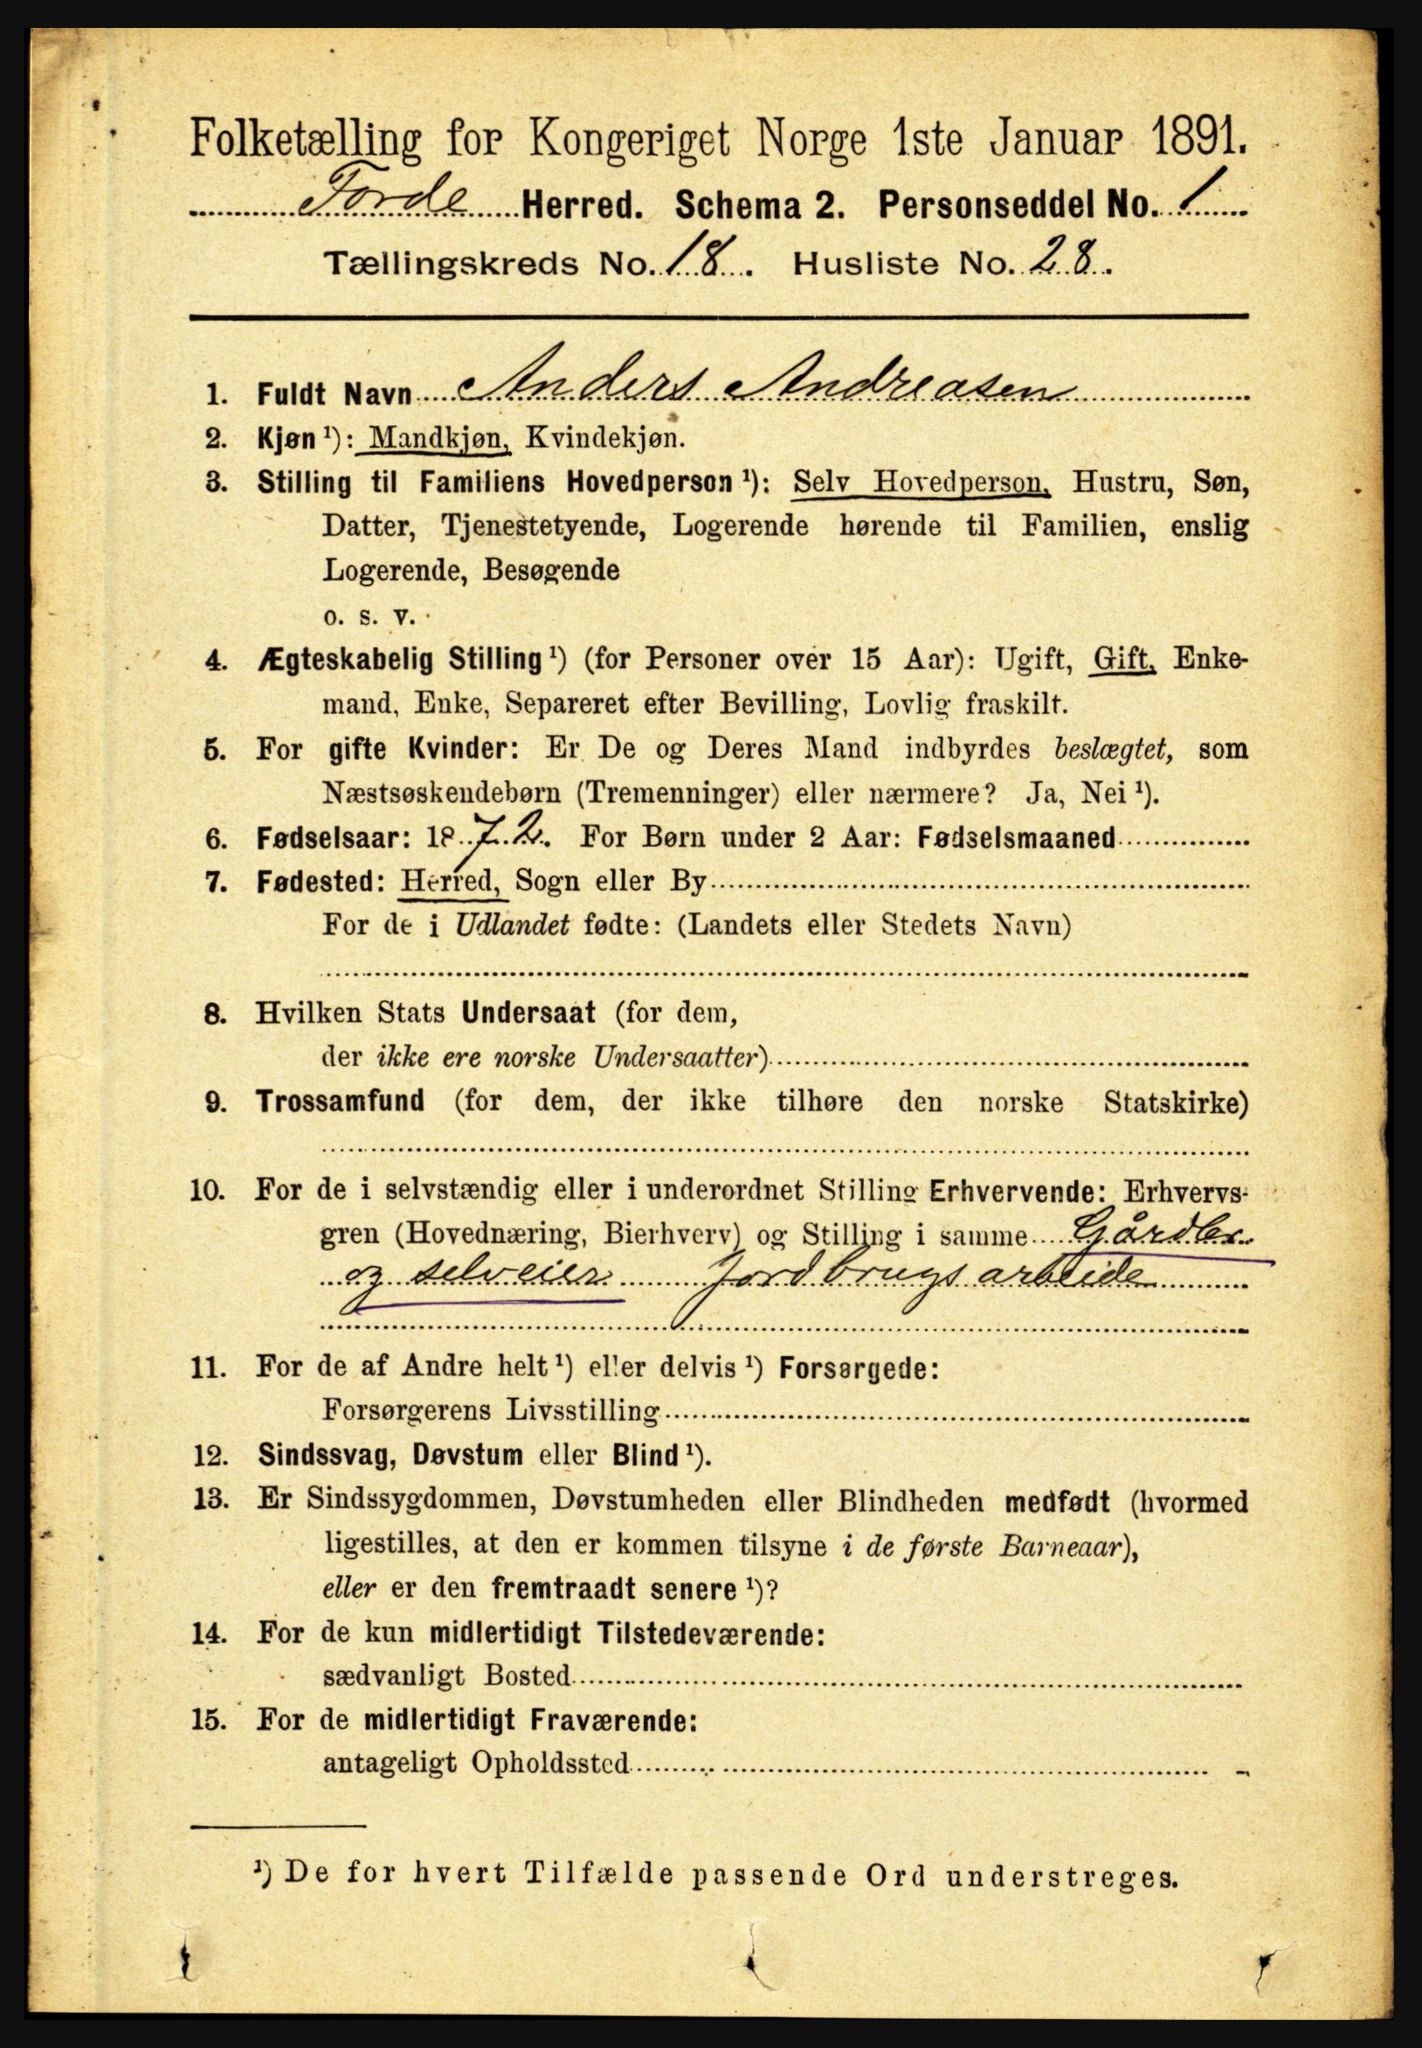 Folketælling for Kongeriget Norge 1ste Januar 1891.
Førde Herred. Schema 2. Personseddel No. 1
Tællingskreds No. 18. Husliste No. 28.
1. Fuldt Navn Anders Andreasen
2. Kjøn ¹): Mandkjøn, Kvindekjøn.
3. Stilling til Familiens Hovedperson ¹): Selv Hovedperson, Hustru, Søn,
Datter, Tjenestetyende, Logerende hørende til Familien, enslig
Logerende, Besøgende
o. s. v.
4. Ægteskabelig Stilling ¹) (for Personer over 15 Aar): Ugift, Gift, Enke-
mand, Enke, Separeret efter Bevilling, Lovlig fraskilt.
5. For gifte Kvinder: Er De og Deres Mand indbyrdes beslægtet, som
Næstsøskendebørn (Tremenninger) eller nærmere? Ja, Nei ¹).
6. Fødselsaar: 1872. For Børn under 2 Aar: Fødselsmaaned
7. Fødested: Herred, Sogn eller By
For de i Udlandet fødte: (Landets eller Stedets Navn)
8. Hvilken Stats Undersaat (for dem,
der ikke ere norske Undersaatter)
9. Trossamfund (for dem, der ikke tilhøre den norske Statskirke)
10. For de i selvstændig eller i underordnet Stilling Erhvervende: Erhvervs-
gren (Hovednæring, Bierhverv) og Stilling i samme Gårdbr.
og selveier Jordbrugsarbeide
11. For de af Andre helt ¹) eller delvis ¹) Forsørgede:
Forsørgerens Livsstilling
12. Sindssvag, Døvstum eller Blind ¹).
13. Er Sindssygdommen, Døvstumheden eller Blindheden medfødt (hvormed
ligestilles, at den er kommen tilsyne i de første Barneaar),
eller er den fremtraadt senere ¹)?
14. For de kun midlertidigt Tilstedeværende:
sædvanligt Bosted
15. For de midlertidigt Fraværende:
antageligt Opholdssted
¹) De for hvert Tilfælde passende Ord understreges.